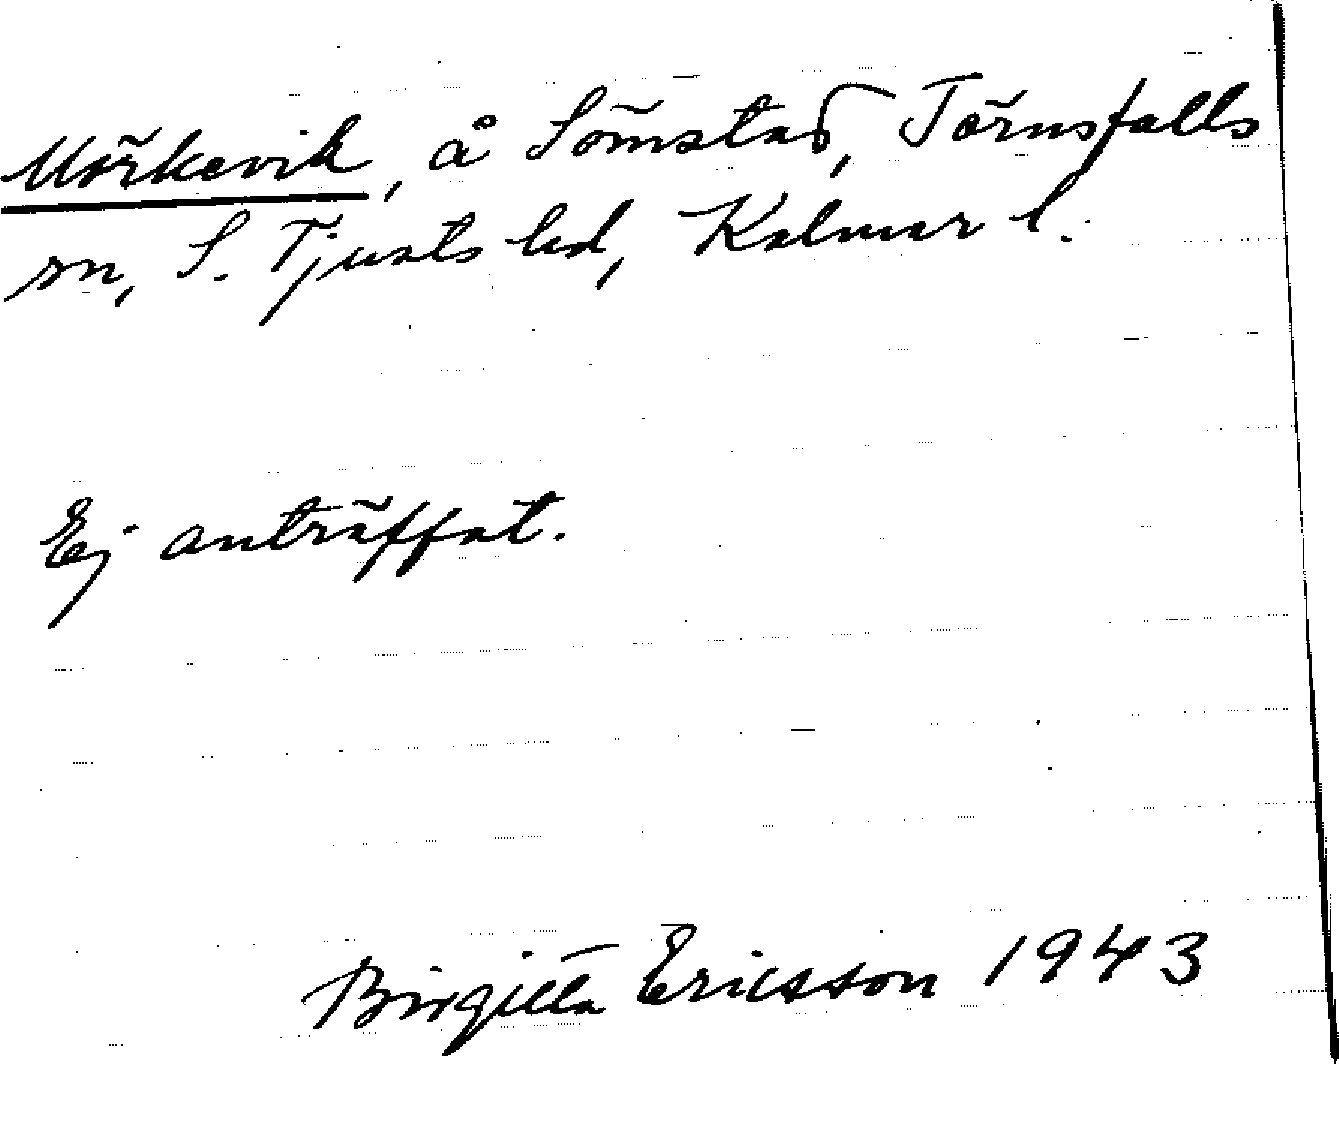 Mörkevik, å Sömstad, Törnsfalls
sn, S. Tjusts hd, Kalmar l.
Ej anträffat.
Birgitta Ericsson 1943